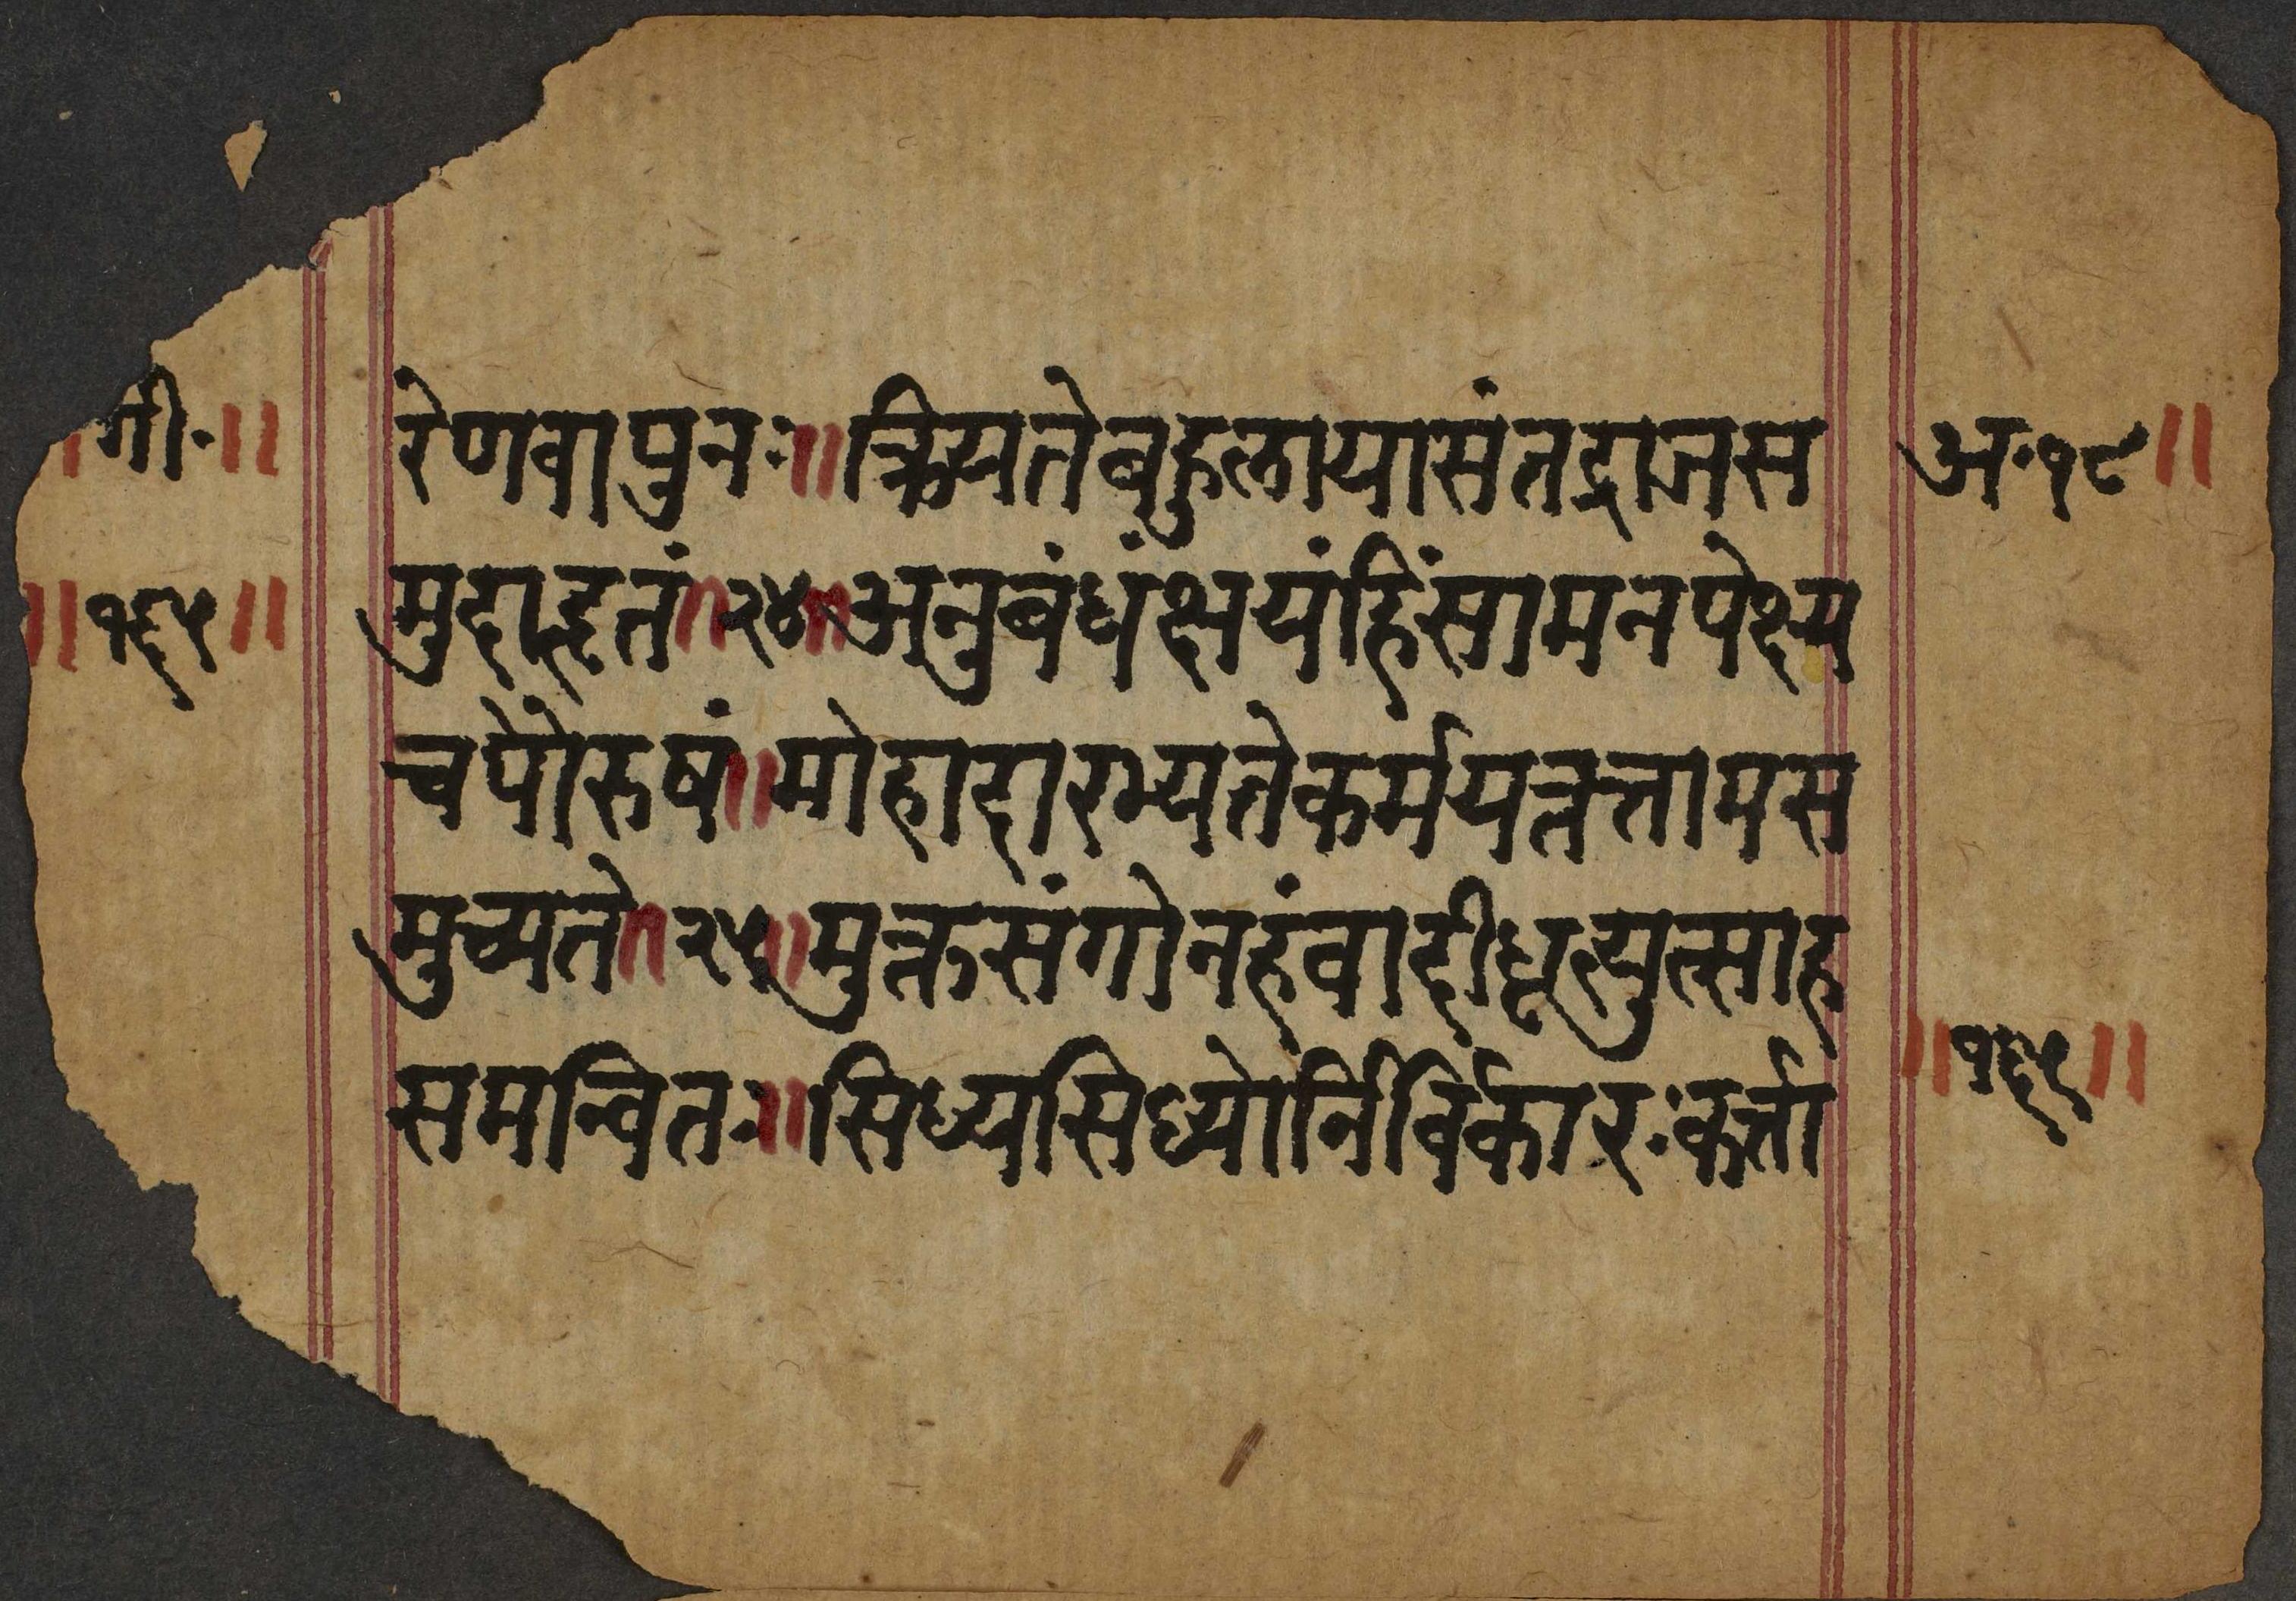 ॥गी॰॥
॥१६५॥
रेणवापुनः॥क्रियतेबहुलायासंतद्राजस
मुदाहृतं॥२४॥अनुबंधंक्षयंहिंसामनपेक्ष्य
चपौरुषं॥मोहादारभ्यतेकर्मयत्तत्तामस
मुच्यते॥२५॥मुक्तसंगोनहंवादीधृत्युत्साह
समन्वितः॥सिध्यसिध्योर्निर्विकारःकर्त्ता
अ॰१८॥
॥१६५॥